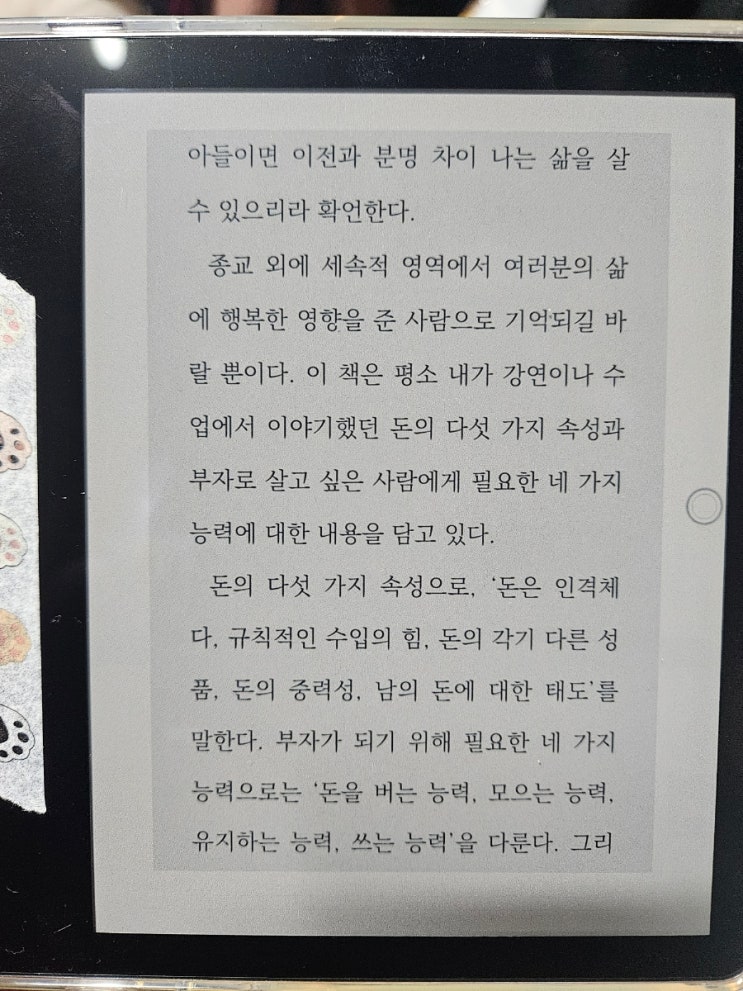 아들이면 이전과 분명 차이 나는 삶을 살
수 있으리라 확언한다.
종교 외에 세속적 영역에서 여러분의 삶
에 행복한 영향을 준 사람으로 기억되길 바
랄 뿐이다. 이 책은 평소 내가 강연이나 수
업에서 이야기했던 돈의 다섯 가지 속성과
부자로 살고 싶은 사람에게 필요한 네 가지
능력에 대한 내용을 담고 있다.
돈의 다섯 가지 속성으로, ‘돈은 인격체
다, 규칙적인 수입의 힘, 돈의 각기 다른 성
품, 돈의 중력성, 남의 돈에 대한 태도’를
말한다. 부자가 되기 위해 필요한 네 가지
능력으로는 ‘돈을 버는 능력, 모으는 능력,
유지하는 능력, 쓰는 능력’을 다룬다. 그리